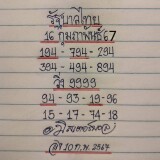 รัฐบาลไทย
16 กุมภาพันธ์ 67
194 - 794 - 294
394 - 494 - 894
วิ่ง 9999
94 - 93 - 19 - 96
15 - 17 - 74 - 18
10 ก.พ. 2567